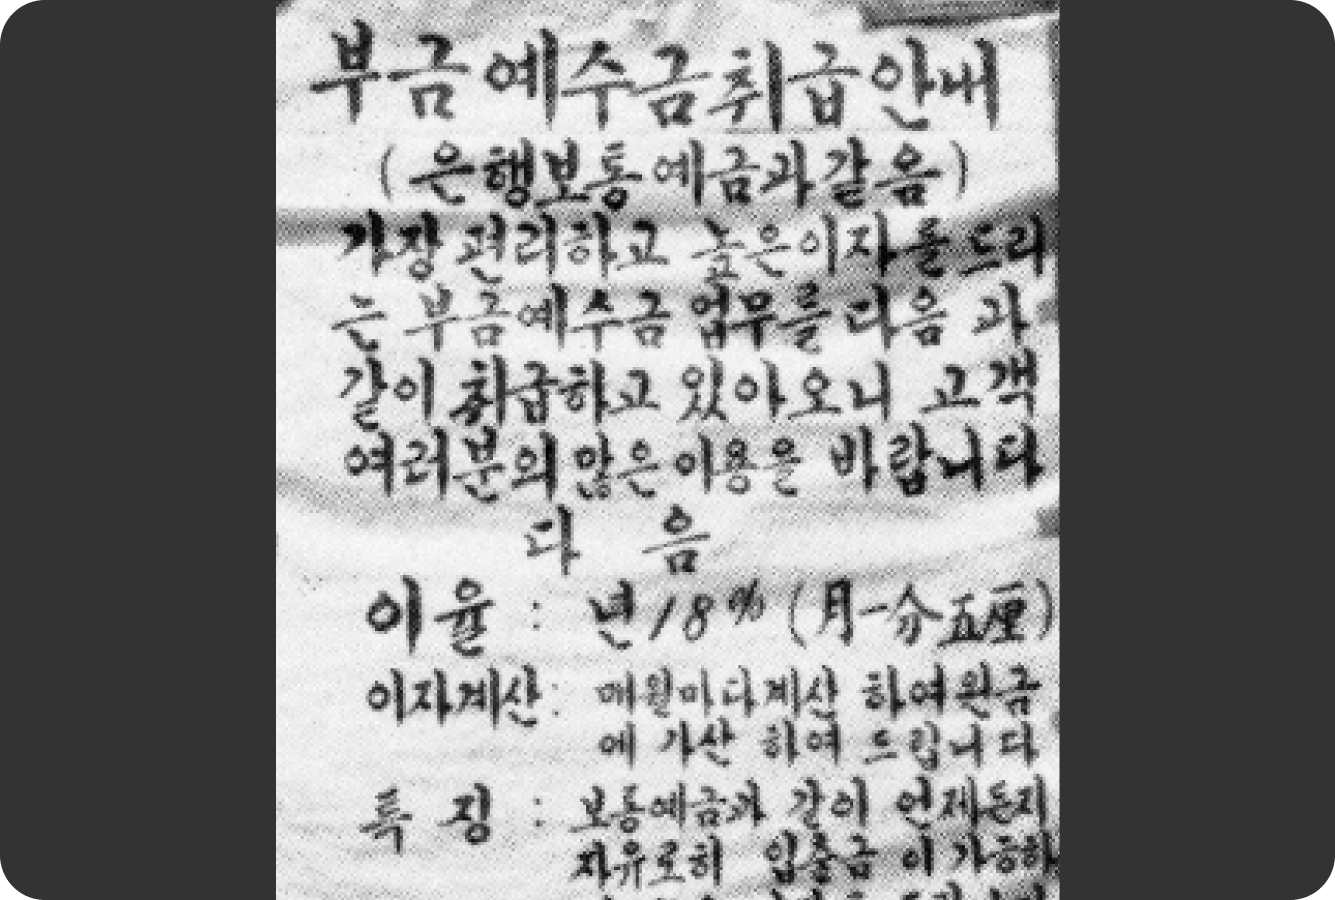 부금예수금취급안내
(은행보통예금과같음)
가장 편리하고 높은이자를드리
는 부금예수금 업무를 다음 과
같이 취급하고 있아오니 고객
여러분의 많은 이용을 바랍니다
다 음
이율 : 년18% (月一分五厘)
이자계산: 매월마다계산 하여원금
에 가산 하여 드립니다
특 징 : 보통예금과 같이 언제든지
자유로히 입출금 이 가능하